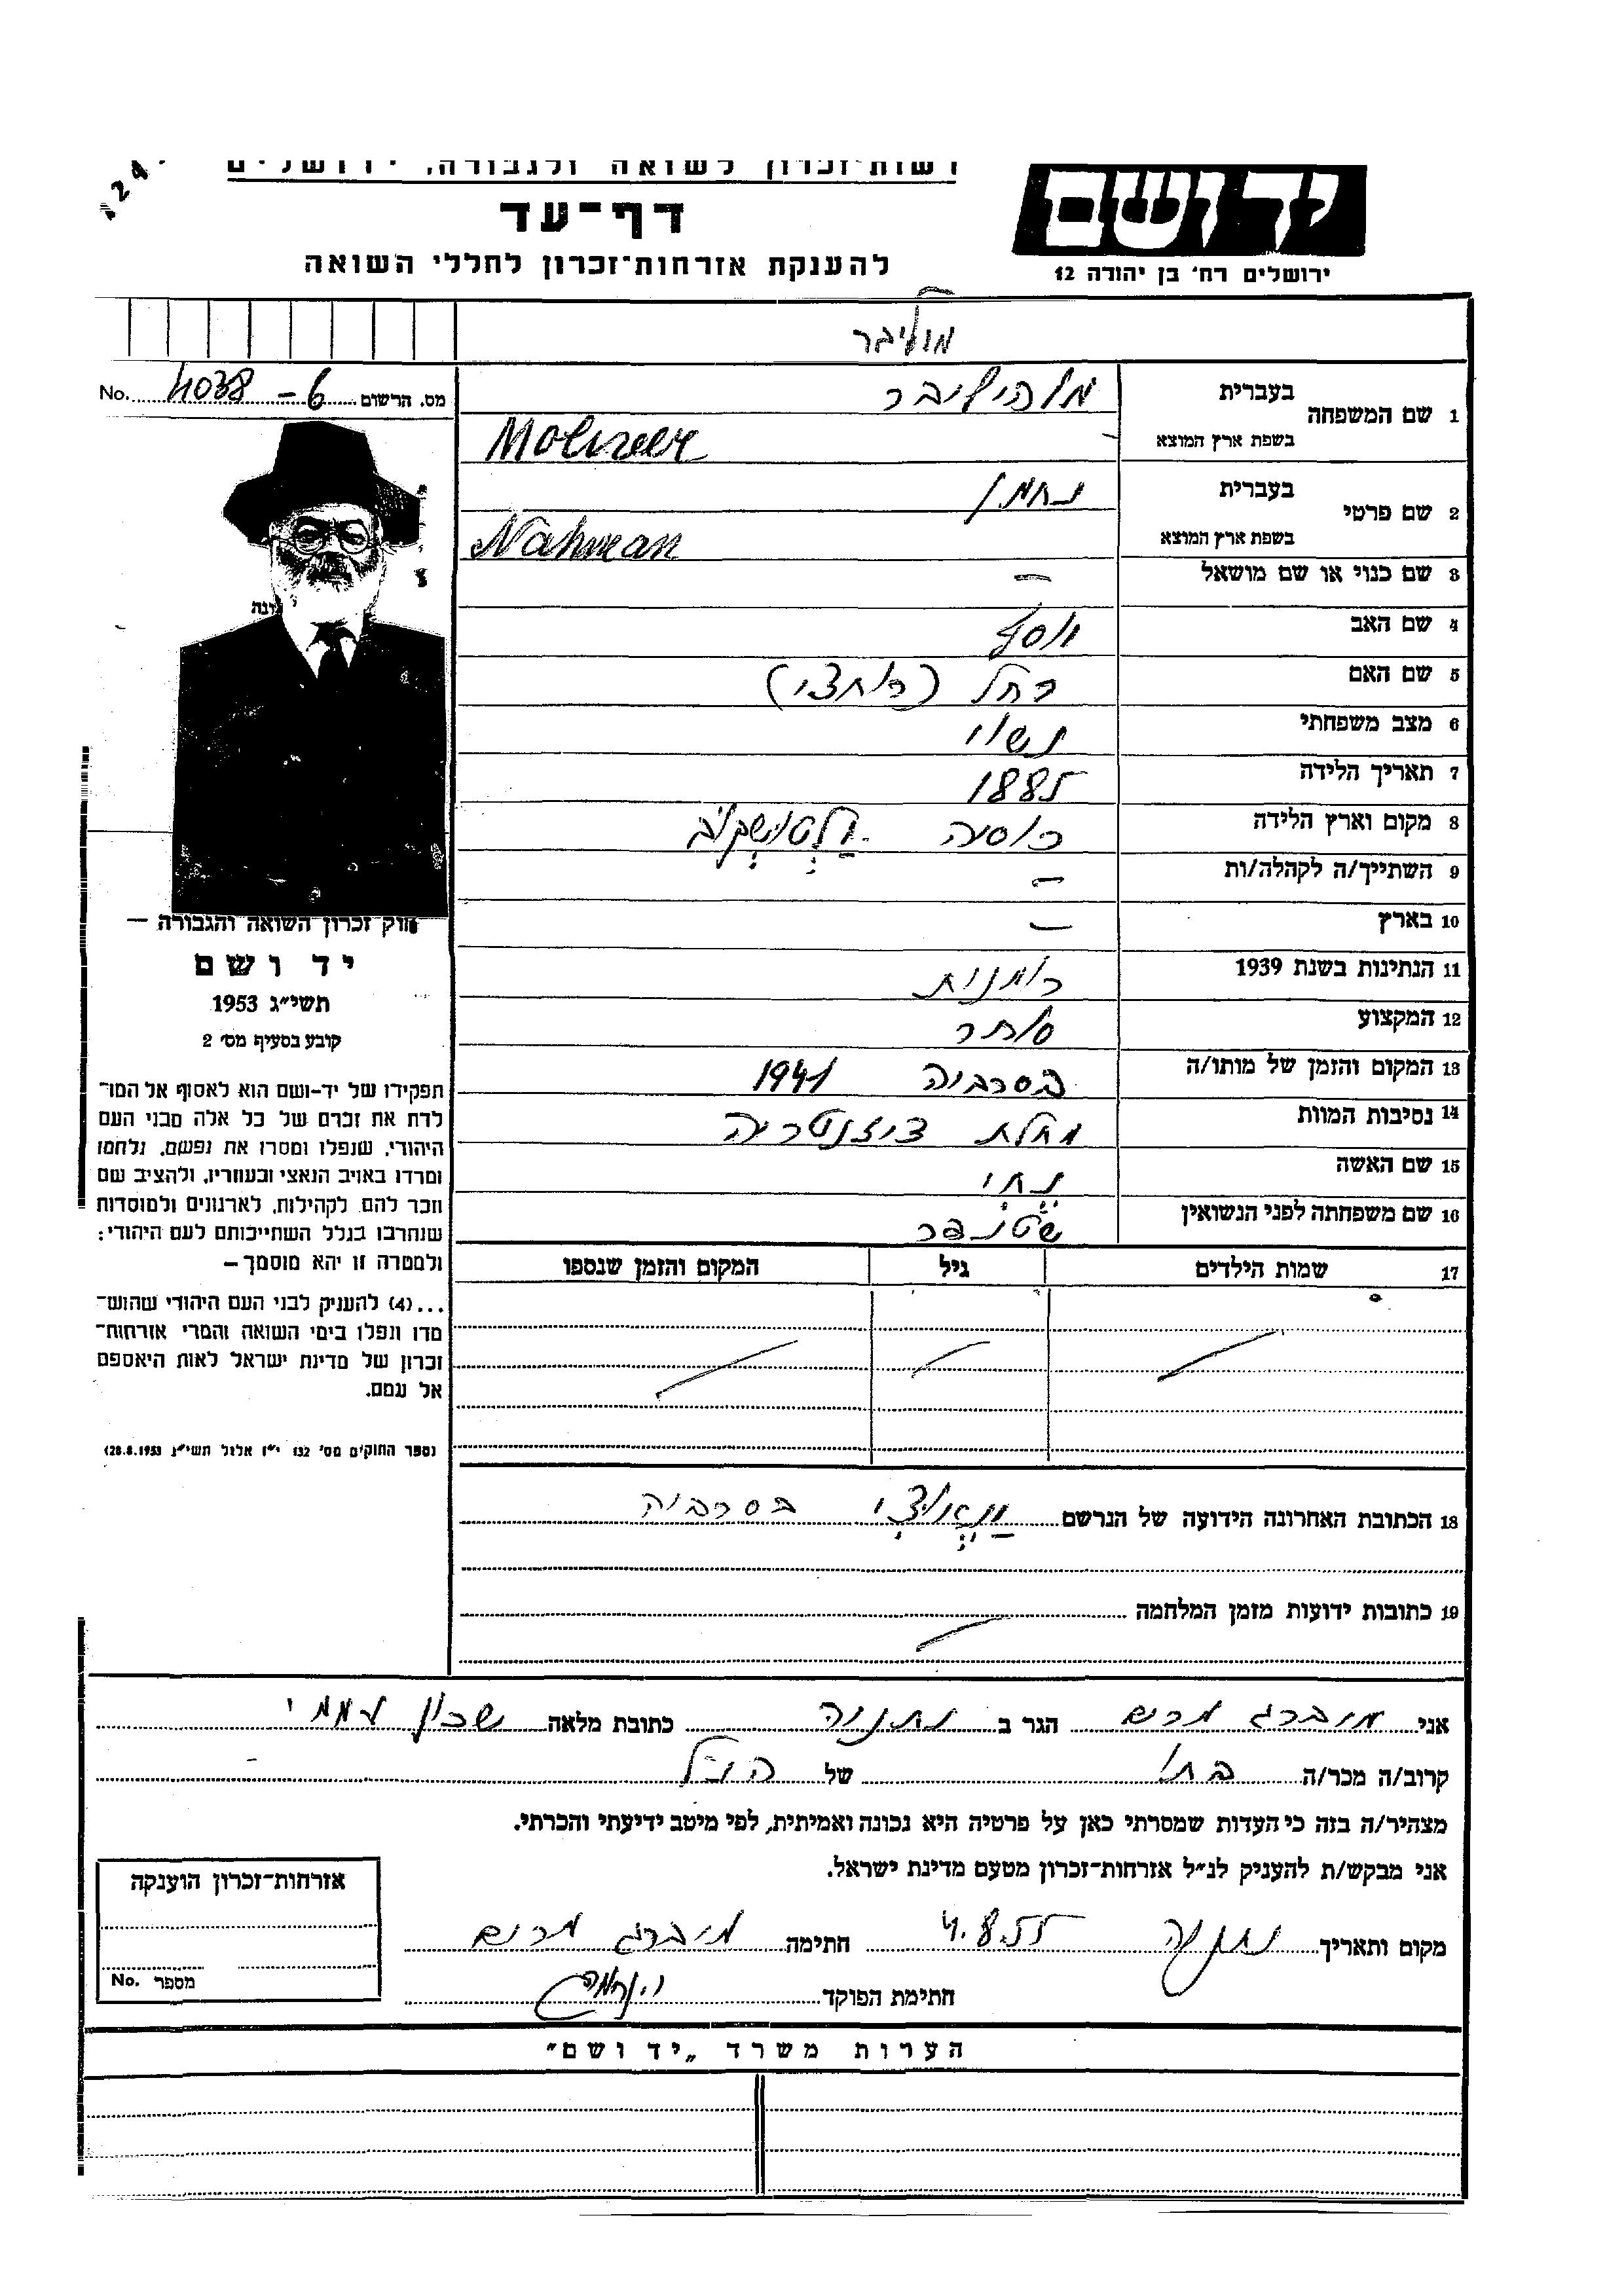 רשות־זכרון לשואה ולגבורה, ירושלים
יד ושם
דף־עד
להענקת אזרחות־זכרון לחללי השואה
ירושלים רח׳ בן יהודה 12
1 שם המשפחה
בעברית
בשפת ארץ המוצא
2 שם פרטי
בעברית נחמן
בשפת ארץ המוצא Nahman
3 שם כנוי או שם מושאל —
4 שם האב יוסף
5 שם האם רחל
6 מצב משפחתי נשוי
7 תאריך הלידה 1885
8 מקום וארץ הלידה רוסיה
9 השתייך/ה לקהלה/ות —
10 בארץ —
11 הנתינות בשנת 1939
12 המקצוע סוחר
13 המקום והזמן של מותו/ה בסרביה 1941
14 נסיבות המוות מחלת דיזנטריה
15 שם האשה
16 שם משפחתה לפני הנשואין
17 שמות הילדים גיל המקום והזמן שנספו
18 הכתובת האחרונה הידועה של הנרשם בסרביה
19 כתובות ידועות מזמן המלחמה
מס. הרשום 6 - 4038 No.
חוק זכרון השואה והגבורה —
יד ושם
תשי״ג 1953
קובע בסעיף מס׳ 2
תפקידו של יד-ושם הוא לאסוף אל המו־
לדת את זכרם של כל אלה מבני העם
היהודי, שנפלו ומסרו את נפשם, נלחמו
ומרדו באויב הנאצי ובעוזריו, ולהציב שם
וזכר להם, לקהילות, לארגונים ולמוסדות
שנחרבו בגלל השתייכותם לעם היהודי;
ולמטרה זו יהא מוסמך —
...(4) להעניק לבני העם היהודי שהוש־
מדו ונפלו בימי השואה והמרי אזרחות־
זכרון של מדינת ישראל לאות היאספם
אל עמם.
(ספר החוקים מס׳ 132 י״ז אלול תשי״ג 28.8.1953)
אני מרים הגר ב נתניה כתובת מלאה שכון עממי
קרוב/ה מכר/ה בתו של הנ״ל
מצהיר/ה בזה כי העדות שמסרתי כאן על פרטיה היא נכונה ואמיתית, לפי מיטב ידיעתי והכרתי.
אני מבקש/ת להעניק לנ״ל אזרחות־זכרון מטעם מדינת ישראל.
מקום ותאריך נתניה 4.8.55 חתימה מרים
חתימת הפוקד
אזרחות־זכרון הוענקה
מספר No.
הערות משרד „יד ושם״